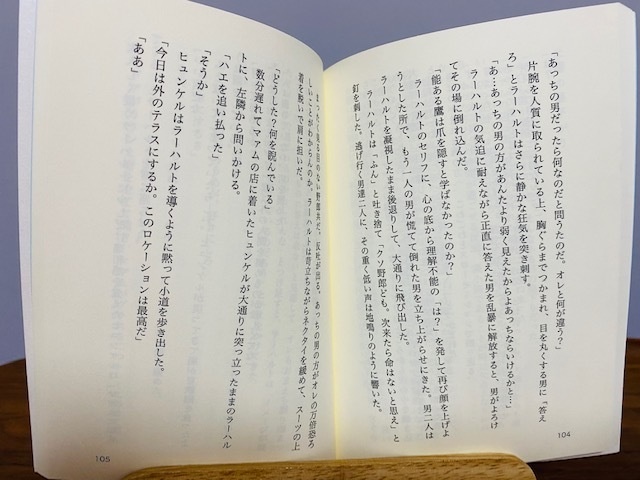 「あっちの男だったら何なのだと問うたのだ。オレと何が違う?」
片腕を人質に取られている上、胸ぐらまでつかまれ、目を丸くする男に「答え
ろ」とラーハルトはさらに静かな狂気を突き刺す。
「あ…あっちの男の方があんたより弱く見えたからよあっちならいけるかと…」
ラーハルトの気迫に耐えながら正直に答えた男を乱暴に解放すると、男がよろけ
てその場に倒れ込んだ。
「能ある鷹は爪を隠すと学ばなかったのか?」
ラーハルトのセリフに、心の底から理解不能の「は?」を発して再び顔を上げよ
うとした所で、もう一人の男が慌てて倒れた男を立ち上がらせにきた。男二人は
ラーハルトを凝視したまま後退りして、大通りに飛び出した。
ラーハルトは「ふん」と吐き捨て「クソ野郎ども。次来たら命はないと思え」と
釘を刺した。逃げ行く男達二人に、その重く低い声は地鳴りのように響いた。
104
まったく見る目のない野郎共だ。反吐が出る。あっちの男の方がオレの万倍恐ろ
しいことがわからんのか。ラーハルトは苛立ちながらネクタイを緩めて、スーツの上
着を脱いで肩に担いだ。
「どうした?何を睨んでいる」
数分遅れてマァムの店に着いたヒュンケルが大通りに突っ立ったままのラーハル
トに、左隣から問いかける。
「ハエを追い払った」
「そうか」
ヒュンケルはラーハルトを導くように黙って小道を歩き出した。
「今日は外のテラスにするか。このロケーションは最高だ」
「ああ」
105